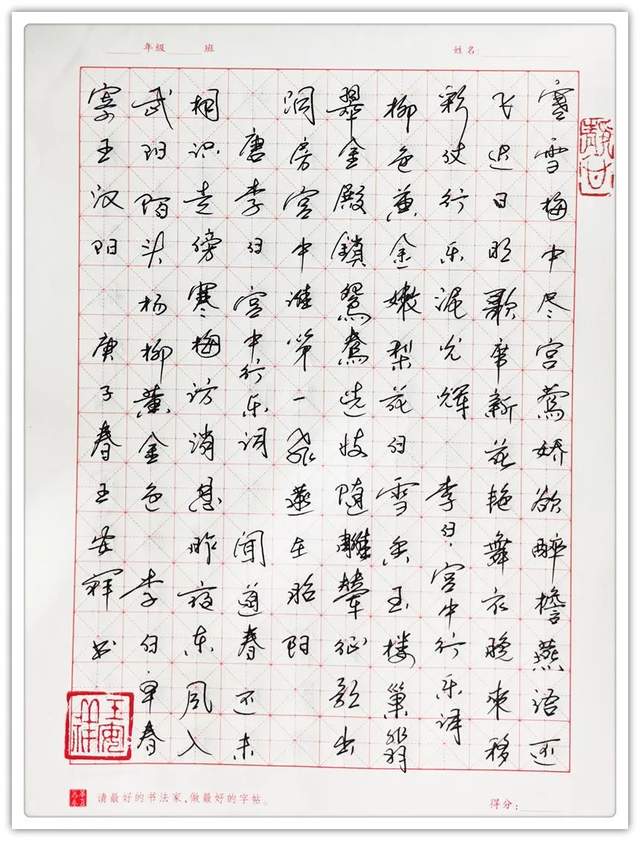 年级 班 姓名:
寒雪梅中尽宫莺娇欲醉檐燕语还
飞迟日明歌席新花艳舞衣晚來移
彩仗行乐泥光辉 李白·宫中行乐词
柳色黄金嫩梨花白雪香玉楼巢翡
翠金殿鎖鴛鴦选妓随雕辇征歌出
洞房宫中谁第一飛燕在昭阳
唐李白宫中行乐词 闻道春还未
相识走傍寒梅访消息昨夜东风入
武阳陌头杨柳黄金色 李白早春
寄王汉阳 庚子春王安祥书
王安祥
请最好的书法家,做最好的字帖。
得分: